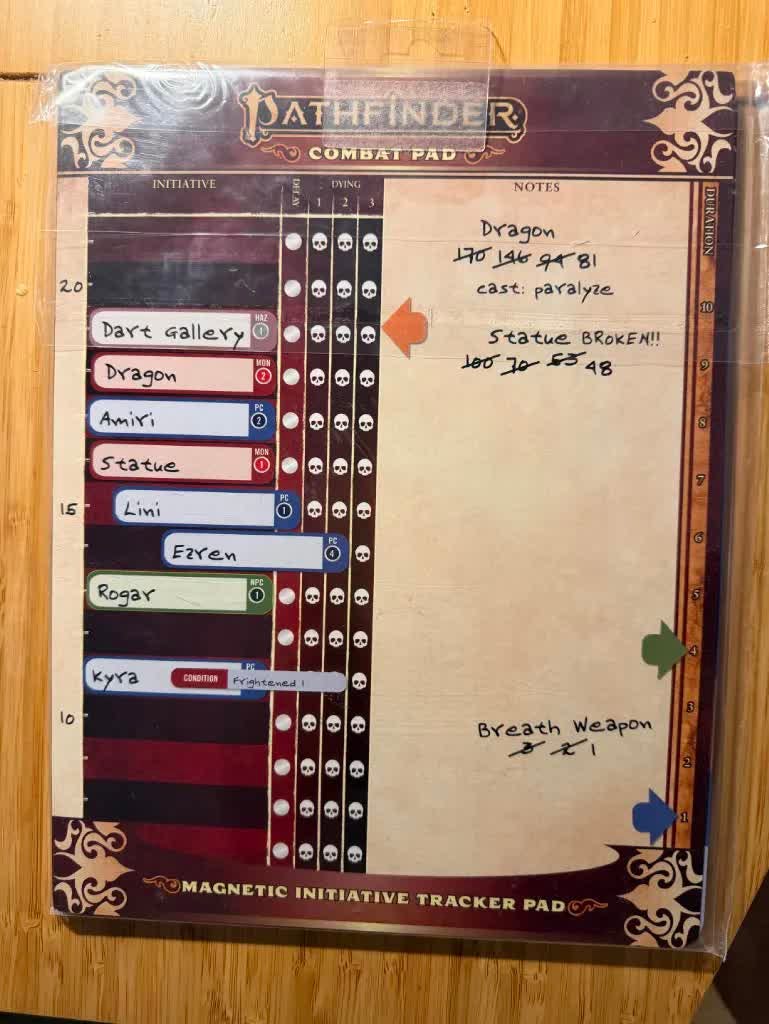 PATHFINDER
COMBAT PAD
INITIATIVE DELAY DYING NOTES DURATION
1 2 3
Dragon
170 146 94 81
20
cast: paralyze
10
Dart Gallery HAZ 1
Statue BROKEN!!
Dragon MON 2
100 70 63 48
9
Amiri PC 2
8
Statue MON 1
7
15 Lini PC 1
6
Ezren PC 4
Rogar NPC 1
5
4
Kyra PC CONDITION Frightened 1
3
10
Breath Weapon
3 2 1
2
1
MAGNETIC INITIATIVE TRACKER PAD